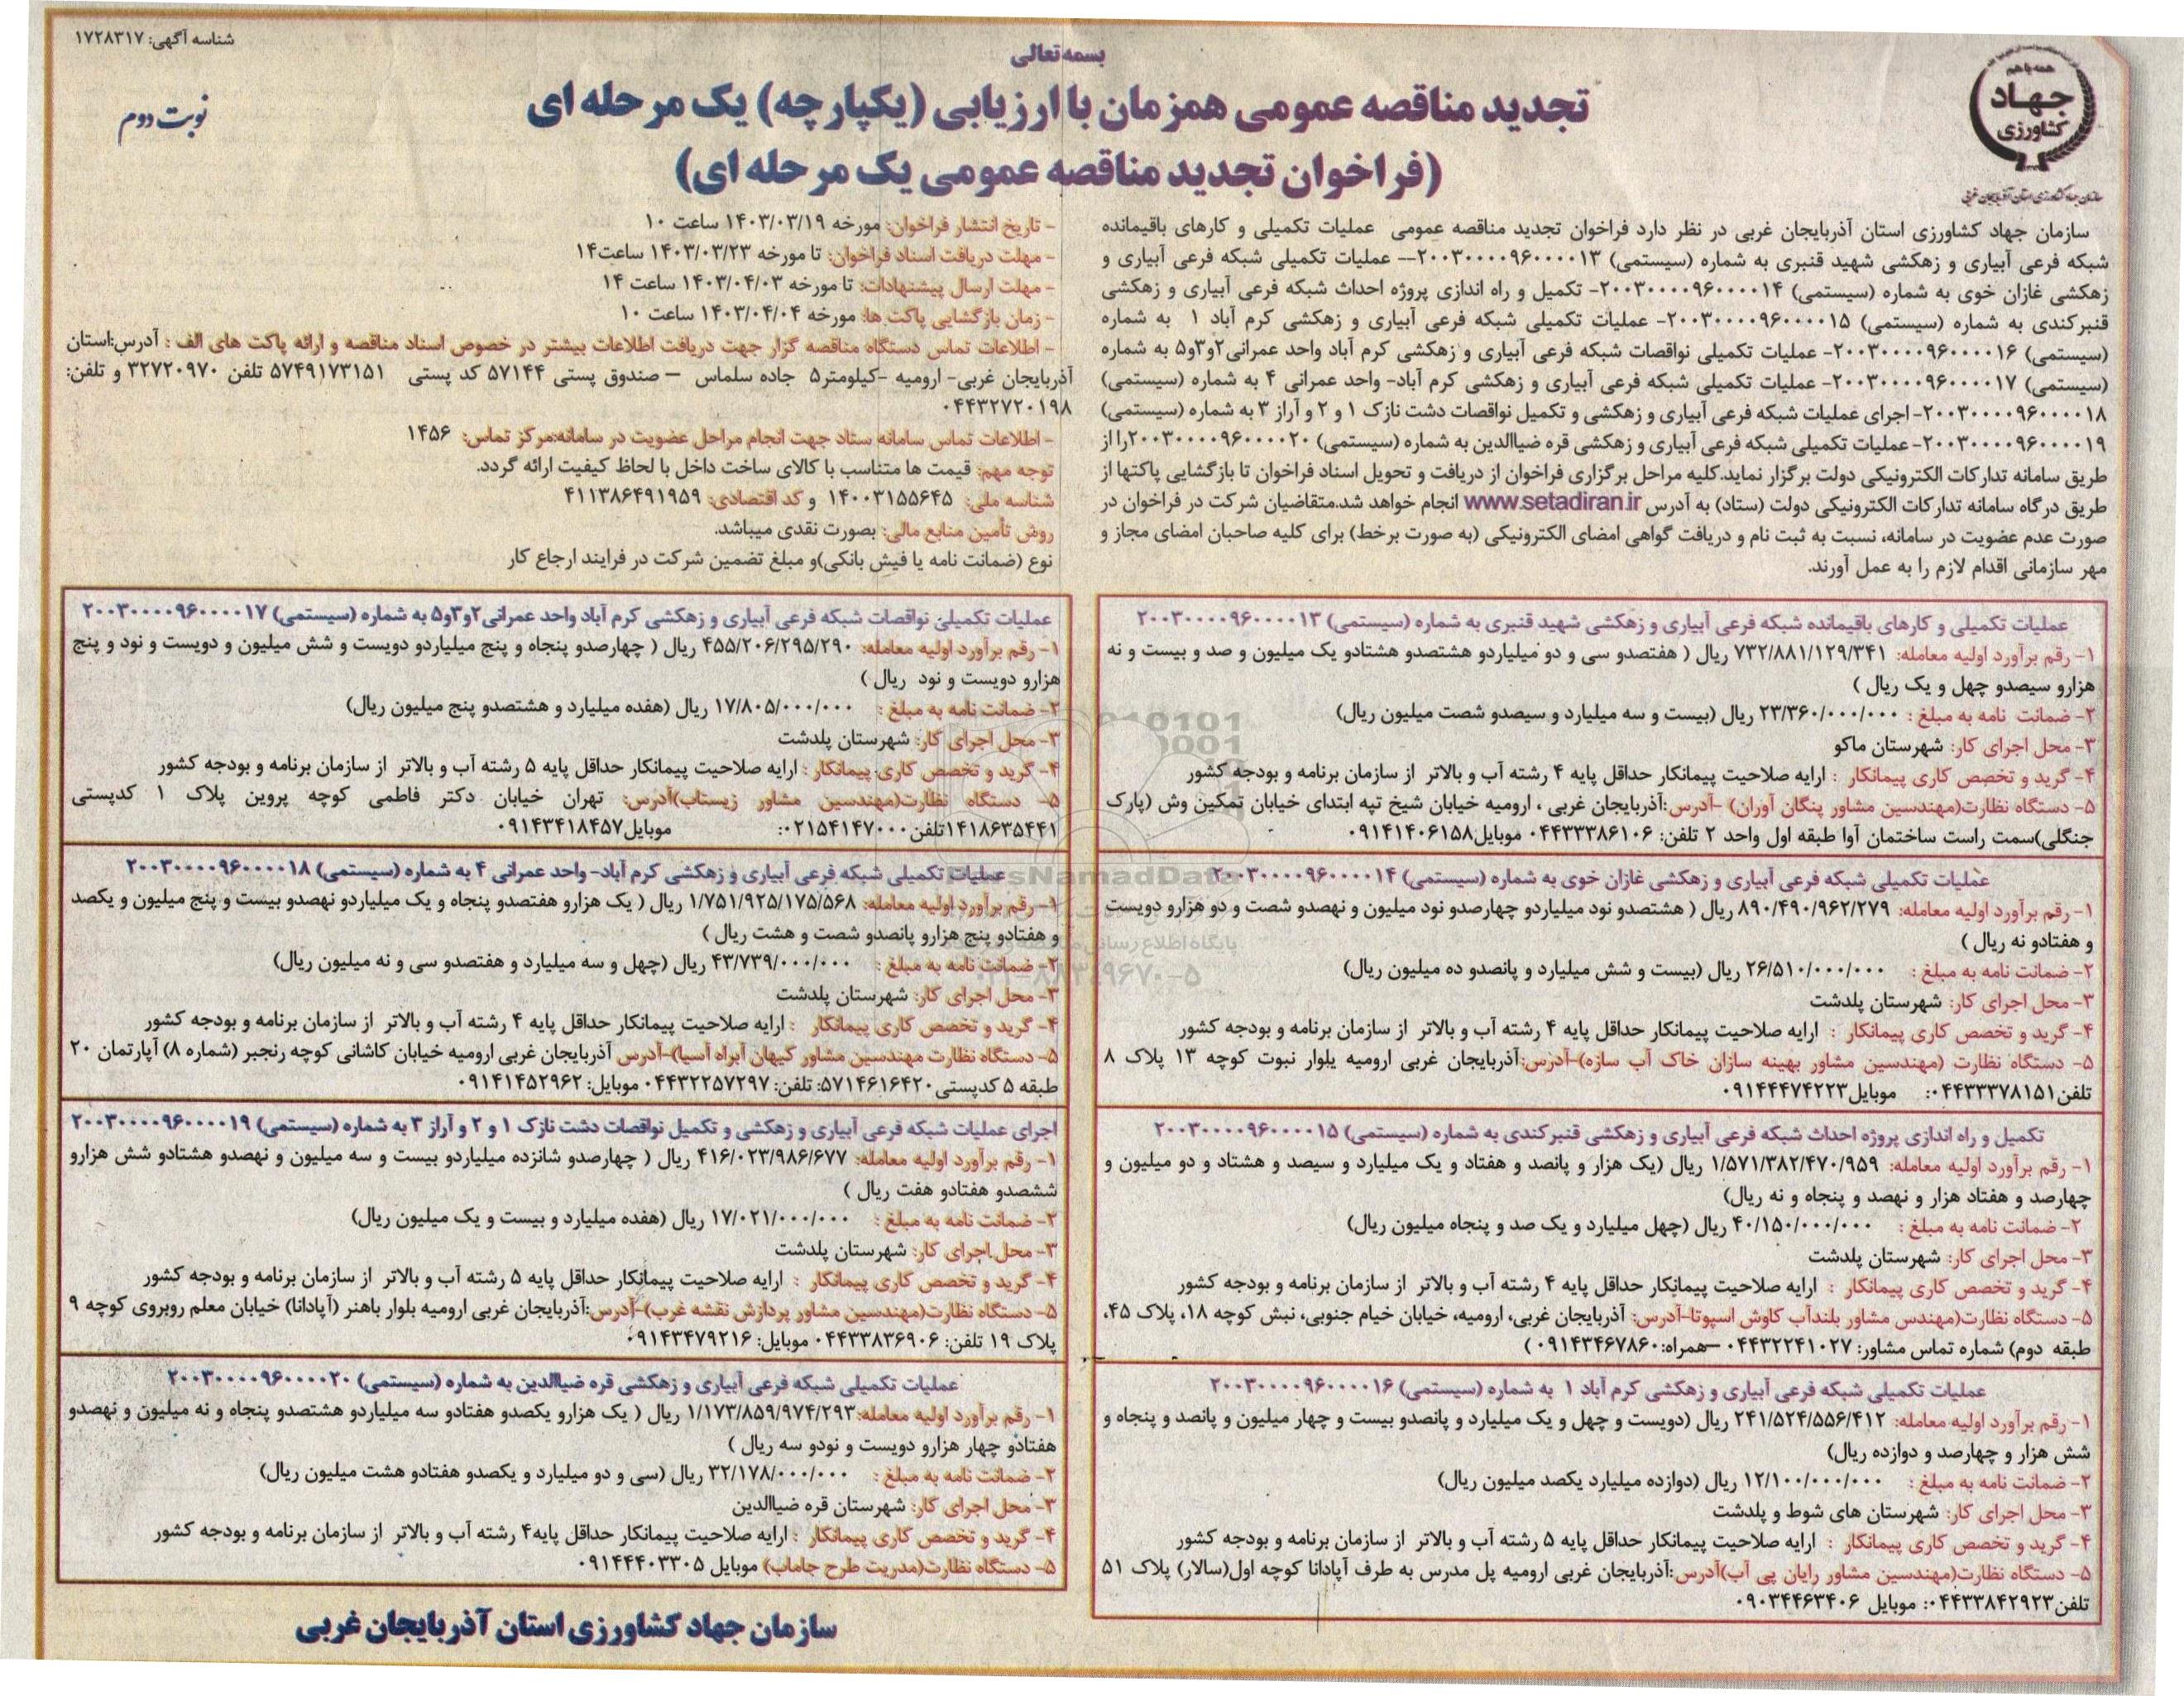 شناسه آگهی: ۱۷۲۸۳۱۷
بسمه تعالی
همه با هم
جهاد
کشاورزی
سازمان جهاد کشاورزی استان آذربایجان غربی
نوبت دوم
تجدید مناقصه عمومی همزمان با ارزیابی (یکپارچه) یک مرحله ای
(فراخوان تجدید مناقصه عمومی یک مرحله ای)
سازمان جهاد کشاورزی استان آذربایجان غربی در نظر دارد فراخوان تجدید مناقصه عمومی عملیات تکمیلی و کارهای باقیمانده
شبکه فرعی آبیاری و زهکشی شهید قنبری به شماره (سیستمی) ۲۰۰۳۰۰۰۰۹۶۰۰۰۰۱۳-- عملیات تکمیلی شبکه فرعی آبیاری و
زهکشی غازان خوی به شماره (سیستمی) ۲۰۰۳۰۰۰۰۹۶۰۰۰۰۱۴- تکمیل و راه اندازی پروژه احداث شبکه فرعی آبیاری و زهکشی
قنبرکندی به شماره (سیستمی) ۲۰۰۳۰۰۰۰۹۶۰۰۰۰۱۵- عملیات تکمیلی شبکه فرعی آبیاری و زهکشی کرم آباد ۱ به شماره
(سیستمی) ۲۰۰۳۰۰۰۰۹۶۰۰۰۰۱۶- عملیات تکمیلی نواقصات شبکه فرعی آبیاری و زهکشی کرم آباد واحد عمرانی۲و۳و۵ به شماره
(سیستمی) ۲۰۰۳۰۰۰۰۹۶۰۰۰۰۱۷- عملیات تکمیلی شبکه فرعی آبیاری و زهکشی کرم آباد- واحد عمرانی ۴ به شماره (سیستمی)
۲۰۰۳۰۰۰۰۹۶۰۰۰۰۱۸-اجرای عملیات شبکه فرعی آبیاری و زهکشی و تکمیل نواقصات دشت نازک ۱ و ۲ و آراز ۳ به شماره (سیستمی)
۲۰۰۳۰۰۰۰۹۶۰۰۰۰۱۹- عملیات تکمیلی شبکه فرعی آبیاری و زهکشی قره ضیاالدین به شماره (سیستمی) ۲۰۰۳۰۰۰۰۹۶۰۰۰۰۲۰را از
طریق سامانه تدارکات الکترونیکی دولت برگزار نماید.کلیه مراحل برگزاری فراخوان از دریافت و تحویل اسناد فراخوان تا بازگشایی پاکتها از
طریق درگاه سامانه تدارکات الکترونیکی دولت (ستاد) به آدرس www.setadiran.ir انجام خواهد شد.متقاضیان شرکت در فراخوان در
صورت عدم عضویت در سامانه، نسبت به ثبت نام و دریافت گواهی امضای الکترونیکی (به صورت برخط) برای کلیه صاحبان امضای مجاز و
مهر سازمانی اقدام لازم را به عمل آورند.
- تاریخ انتشار فراخوان: مورخه ۱۴۰۳/۰۳/۱۹ ساعت ۱۰
- مهلت دریافت اسناد فراخوان: تا مورخه ۱۴۰۳/۰۳/۲۳ ساعت۱۴
- مهلت ارسال پیشنهادات: تا مورخه ۱۴۰۳/۰۴/۰۳ ساعت ۱۴
- زمان بازگشایی پاکت ها: مورخه ۱۴۰۳/۰۴/۰۴ ساعت ۱۰
- اطلاعات تماس دستگاه مناقصه گزار جهت دریافت اطلاعات بیشتر در خصوص اسناد مناقصه و ارائه پاکت های الف : آدرس:استان
آذربایجان غربی- ارومیه -کیلومتر۵ جاده سلماس – صندوق پستی ۵۷۱۴۴ کد پستی ۵۷۴۹۱۷۳۱۵۱ تلفن ۳۲۷۲۰۹۷۰ و تلفن:
۰۴۴۳۲۷۲۰۱۹۸
- اطلاعات تماس سامانه ستاد جهت انجام مراحل عضویت در سامانه:مرکز تماس: ۱۴۵۶
توجه مهم: قیمت ها متناسب با کالای ساخت داخل با لحاظ کیفیت ارائه گردد.
شناسه ملی: ۱۴۰۰۳۱۵۵۶۴۵ و کد اقتصادی: ۴۱۱۳۸۶۴۹۱۹۵۹
روش تأمین منابع مالی: بصورت نقدی میباشد.
نوع (ضمانت نامه یا فیش بانکی)و مبلغ تضمین شرکت در فرایند ارجاع کار
عملیات تکمیلی و کارهای باقیمانده شبکه فرعی آبیاری و زهکشی شهید قنبری به شماره (سیستمی) ۲۰۰۳۰۰۰۰۹۶۰۰۰۰۱۳
۱- رقم برآورد اولیه معامله: ۷۳۲/۸۸۱/۱۲۹/۳۴۱ ریال ( هفتصدو سی و دو میلیاردو هشتصدو هشتادو یک میلیون و صد و بیست و نه
هزارو سیصدو چهل و یک ریال )
۲- ضمانت نامه به مبلغ : ۲۳/۳۶۰/۰۰۰/۰۰۰ ریال (بیست و سه میلیارد و سیصدو شصت میلیون ریال)
۳- محل اجرای کار: شهرستان ماکو
۴- گرید و تخصص کاری پیمانکار : ارایه صلاحیت پیمانکار حداقل پایه ۴ رشته آب و بالاتر از سازمان برنامه و بودجه کشور
۵- دستگاه نظارت(مهندسین مشاور پنگان آوران) -آدرس:آذربایجان غربی ، ارومیه خیابان شیخ تپه ابتدای خیابان تمکین وش (پارک
جنگلی)سمت راست ساختمان آوا طبقه اول واحد ۲ تلفن: ۰۴۴۳۳۳۸۶۱۰۶ موبایل۰۹۱۴۱۴۰۶۱۵۸
عملیات تکمیلی شبکه فرعی آبیاری و زهکشی غازان خوی به شماره (سیستمی) ۲۰۰۳۰۰۰۰۹۶۰۰۰۰۱۴
۱- رقم برآورد اولیه معامله: ۸۹۰/۴۹۰/۹۶۲/۲۷۹ ریال ( هشتصدو نود میلیاردو چهارصدو نود میلیون و نهصدو شصت و دو هزارو دویست
و هفتادو نه ریال )
۲- ضمانت نامه به مبلغ : ۲۶/۵۱۰/۰۰۰/۰۰۰ ریال (بیست و شش میلیارد و پانصدو ده میلیون ریال)
۳- محل اجرای کار: شهرستان پلدشت
۴- گرید و تخصص کاری پیمانکار : ارایه صلاحیت پیمانکار حداقل پایه ۴ رشته آب و بالاتر از سازمان برنامه و بودجه کشور
۵- دستگاه نظارت (مهندسین مشاور بهینه سازان خاک آب سازه)-آدرس:آذربایجان غربی ارومیه یلوار نبوت کوچه ۱۳ پلاک ۸
تلفن۰۴۴۳۳۳۷۸۱۵۱: موبایل۰۹۱۴۴۴۷۴۲۲۳
تکمیل و راه اندازی پروژه احداث شبکه فرعی آبیاری و زهکشی قنبرکندی به شماره (سیستمی) ۲۰۰۳۰۰۰۰۹۶۰۰۰۰۱۵
۱- رقم برآورد اولیه معامله: ۱/۵۷۱/۳۸۲/۴۷۰/۹۵۹ ریال (یک هزار و پانصد و هفتاد و یک میلیارد و سیصد و هشتاد و دو میلیون و
چهارصد و هفتاد هزار و نهصد و پنجاه و نه ریال)
۲- ضمانت نامه به مبلغ : ۴۰/۱۵۰/۰۰۰/۰۰۰ ریال (چهل میلیارد و یک صد و پنجاه میلیون ریال)
۳- محل اجرای کار: شهرستان پلدشت
۴- گرید و تخصص کاری پیمانکار : ارایه صلاحیت پیمانکار حداقل پایه ۴ رشته آب و بالاتر از سازمان برنامه و بودجه کشور
۵- دستگاه نظارت(مهندس مشاور بلندآب کاوش اسپوتا-آدرس: آذربایجان غربی، ارومیه، خیابان خیام جنوبی، نبش کوچه ۱۸، پلاک ۴۵،
طبقه دوم) شماره تماس مشاور: ۰۴۴۳۲۲۴۱۰۲۷ –همراه:۰۹۱۴۳۴۶۷۸۶۰ )
عملیات تکمیلی شبکه فرعی آبیاری و زهکشی کرم آباد ۱ به شماره (سیستمی) ۲۰۰۳۰۰۰۰۹۶۰۰۰۰۱۶
۱- رقم برآورد اولیه معامله: ۲۴۱/۵۲۴/۵۵۶/۴۱۲ ریال (دویست و چهل و یک میلیارد و پانصدو بیست و چهار میلیون و پانصد و پنجاه و
شش هزار و چهارصد و دوازده ریال)
۲- ضمانت نامه به مبلغ : ۱۲/۱۰۰/۰۰۰/۰۰۰ ریال (دوازده میلیارد یکصد میلیون ریال)
۳- محل اجرای کار: شهرستان های شوط و پلدشت
۴- گرید و تخصص کاری پیمانکار : ارایه صلاحیت پیمانکار حداقل پایه ۵ رشته آب و بالاتر از سازمان برنامه و بودجه کشور
۵- دستگاه نظارت(مهندسین مشاور رایان پی آب)آدرس:آذربایجان غربی ارومیه پل مدرس به طرف آپادانا کوچه اول(سالار) پلاک ۵۱
تلفن۰۴۴۳۳۸۴۲۹۲۳: موبایل ۰۹۰۳۴۴۶۳۴۰۶
عملیات تکمیلی نواقصات شبکه فرعی آبیاری و زهکشی کرم آباد واحد عمرانی۲و۳و۵ به شماره (سیستمی) ۲۰۰۳۰۰۰۰۹۶۰۰۰۰۱۷
۱- رقم برآورد اولیه معامله: ۴۵۵/۲۰۶/۲۹۵/۲۹۰ ریال ( چهارصدو پنجاه و پنج میلیاردو دویست و شش میلیون و دویست و نود و پنج
هزارو دویست و نود ریال )
۲- ضمانت نامه به مبلغ : ۱۷/۸۰۵/۰۰۰/۰۰۰ ریال (هفده میلیارد و هشتصدو پنج میلیون ریال)
۳- محل اجرای کار: شهرستان پلدشت
۴- گرید و تخصص کاری پیمانکار : ارایه صلاحیت پیمانکار حداقل پایه ۵ رشته آب و بالاتر از سازمان برنامه و بودجه کشور
۵- دستگاه نظارت(مهندسین مشاور زیستاب)آدرس: تهران خیابان دکتر فاطمی کوچه پروین پلاک ۱ کدپستی
۱۴۱۸۶۳۵۴۴۱تلفن۰۲۱۵۴۱۴۷۰۰۰: موبایل۰۹۱۴۳۴۱۸۴۵۷
عملیات تکمیلی شبکه فرعی آبیاری و زهکشی کرم آباد- واحد عمرانی ۴ به شماره (سیستمی) ۲۰۰۳۰۰۰۰۹۶۰۰۰۰۱۸
۱- رقم برآورد اولیه معامله: ۱/۷۵۱/۹۲۵/۱۷۵/۵۶۸ ریال ( یک هزارو هفتصدو پنجاه و یک میلیاردو نهصدو بیست و پنج میلیون و یکصد
و هفتادو پنج هزارو پانصدو شصت و هشت ریال )
۲- ضمانت نامه به مبلغ : ۴۳/۷۳۹/۰۰۰/۰۰۰ ریال (چهل و سه میلیارد و هفتصدو سی و نه میلیون ریال)
۳- محل اجرای کار: شهرستان پلدشت
۴- گرید و تخصص کاری پیمانکار : ارایه صلاحیت پیمانکار حداقل پایه ۴ رشته آب و بالاتر از سازمان برنامه و بودجه کشور
۵- دستگاه نظارت مهندسین مشاور کیهان آبراه آسیا)-آدرس آذربایجان غربی ارومیه خیابان کاشانی کوچه رنجبر (شماره ۸) آپارتمان ۲۰
طبقه ۵ کدپستی۵۷۱۴۶۱۶۴۲۰: تلفن: ۰۴۴۳۲۲۵۷۲۹۷ موبایل: ۰۹۱۴۱۴۵۲۹۶۲
اجرای عملیات شبکه فرعی آبیاری و زهکشی و تکمیل نواقصات دشت نازک ۱ و ۲ و آراز ۳ به شماره (سیستمی) ۲۰۰۳۰۰۰۰۹۶۰۰۰۰۱۹
۱- رقم برآورد اولیه معامله: ۴۱۶/۰۲۳/۹۸۶/۶۷۷ ریال ( چهارصدو شانزده میلیاردو بیست و سه میلیون و نهصدو هشتادو شش هزارو
ششصدو هفتادو هفت ریال )
۲- ضمانت نامه به مبلغ : ۱۷/۰۲۱/۰۰۰/۰۰۰ ریال (هفده میلیارد و بیست و یک میلیون ریال)
۳- محل اجرای کار: شهرستان پلدشت
۴- گرید و تخصص کاری پیمانکار : ارایه صلاحیت پیمانکار حداقل پایه ۵ رشته آب و بالاتر از سازمان برنامه و بودجه کشور
۵- دستگاه نظارت(مهندسین مشاور پردازش نقشه غرب)-آدرس:آذربایجان غربی ارومیه بلوار باهنر (آپادانا) خیابان معلم روبروی کوچه ۹
پلاک ۱۹ تلفن: ۰۴۴۳۳۸۳۶۹۰۶ موبایل: ۰۹۱۴۳۴۷۹۲۱۶
عملیات تکمیلی شبکه فرعی آبیاری و زهکشی قره ضیاالدین به شماره (سیستمی) ۲۰۰۳۰۰۰۰۹۶۰۰۰۰۲۰
۱- رقم برآورد اولیه معامله:۱/۱۷۳/۸۵۹/۹۷۴/۲۹۳ ریال ( یک هزارو یکصدو هفتادو سه میلیاردو هشتصدو پنجاه و نه میلیون و نهصدو
هفتادو چهار هزارو دویست و نودو سه ریال )
۲- ضمانت نامه به مبلغ : ۳۲/۱۷۸/۰۰۰/۰۰۰ ریال (سی و دو میلیارد و یکصدو هفتادو هشت میلیون ریال)
۳- محل اجرای کار: شهرستان قره ضیاالدین
۴- گرید و تخصص کاری پیمانکار : ارایه صلاحیت پیمانکار حداقل پایه۴ رشته آب و بالاتر از سازمان برنامه و بودجه کشور
۵- دستگاه نظارت(مدریت طرح جاماب) موبایل ۰۹۱۴۴۴۰۳۳۰۵
سازمان جهاد کشاورزی استان آذربایجان غربی